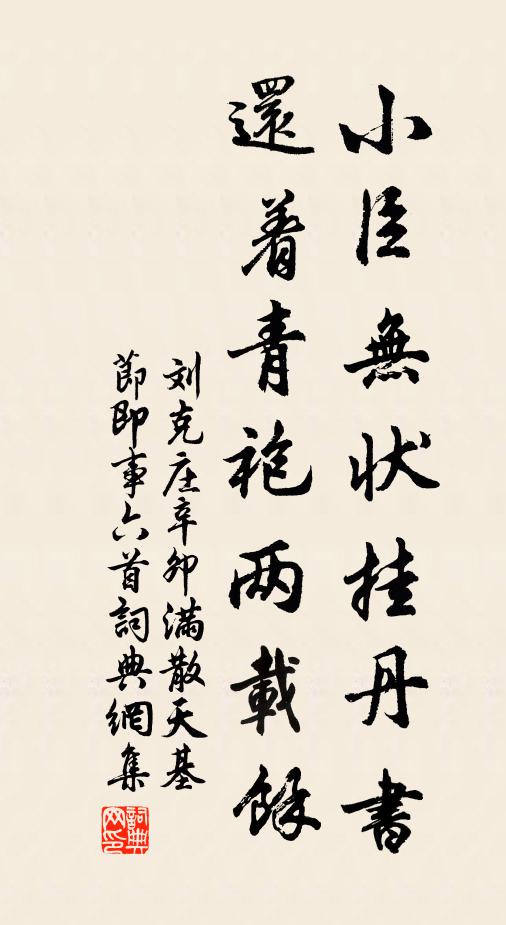 小臣無状挂丹書
還着青袍两載餘
刘克庄辛卯满散天基
節即事六首詞典網集
詞典网印